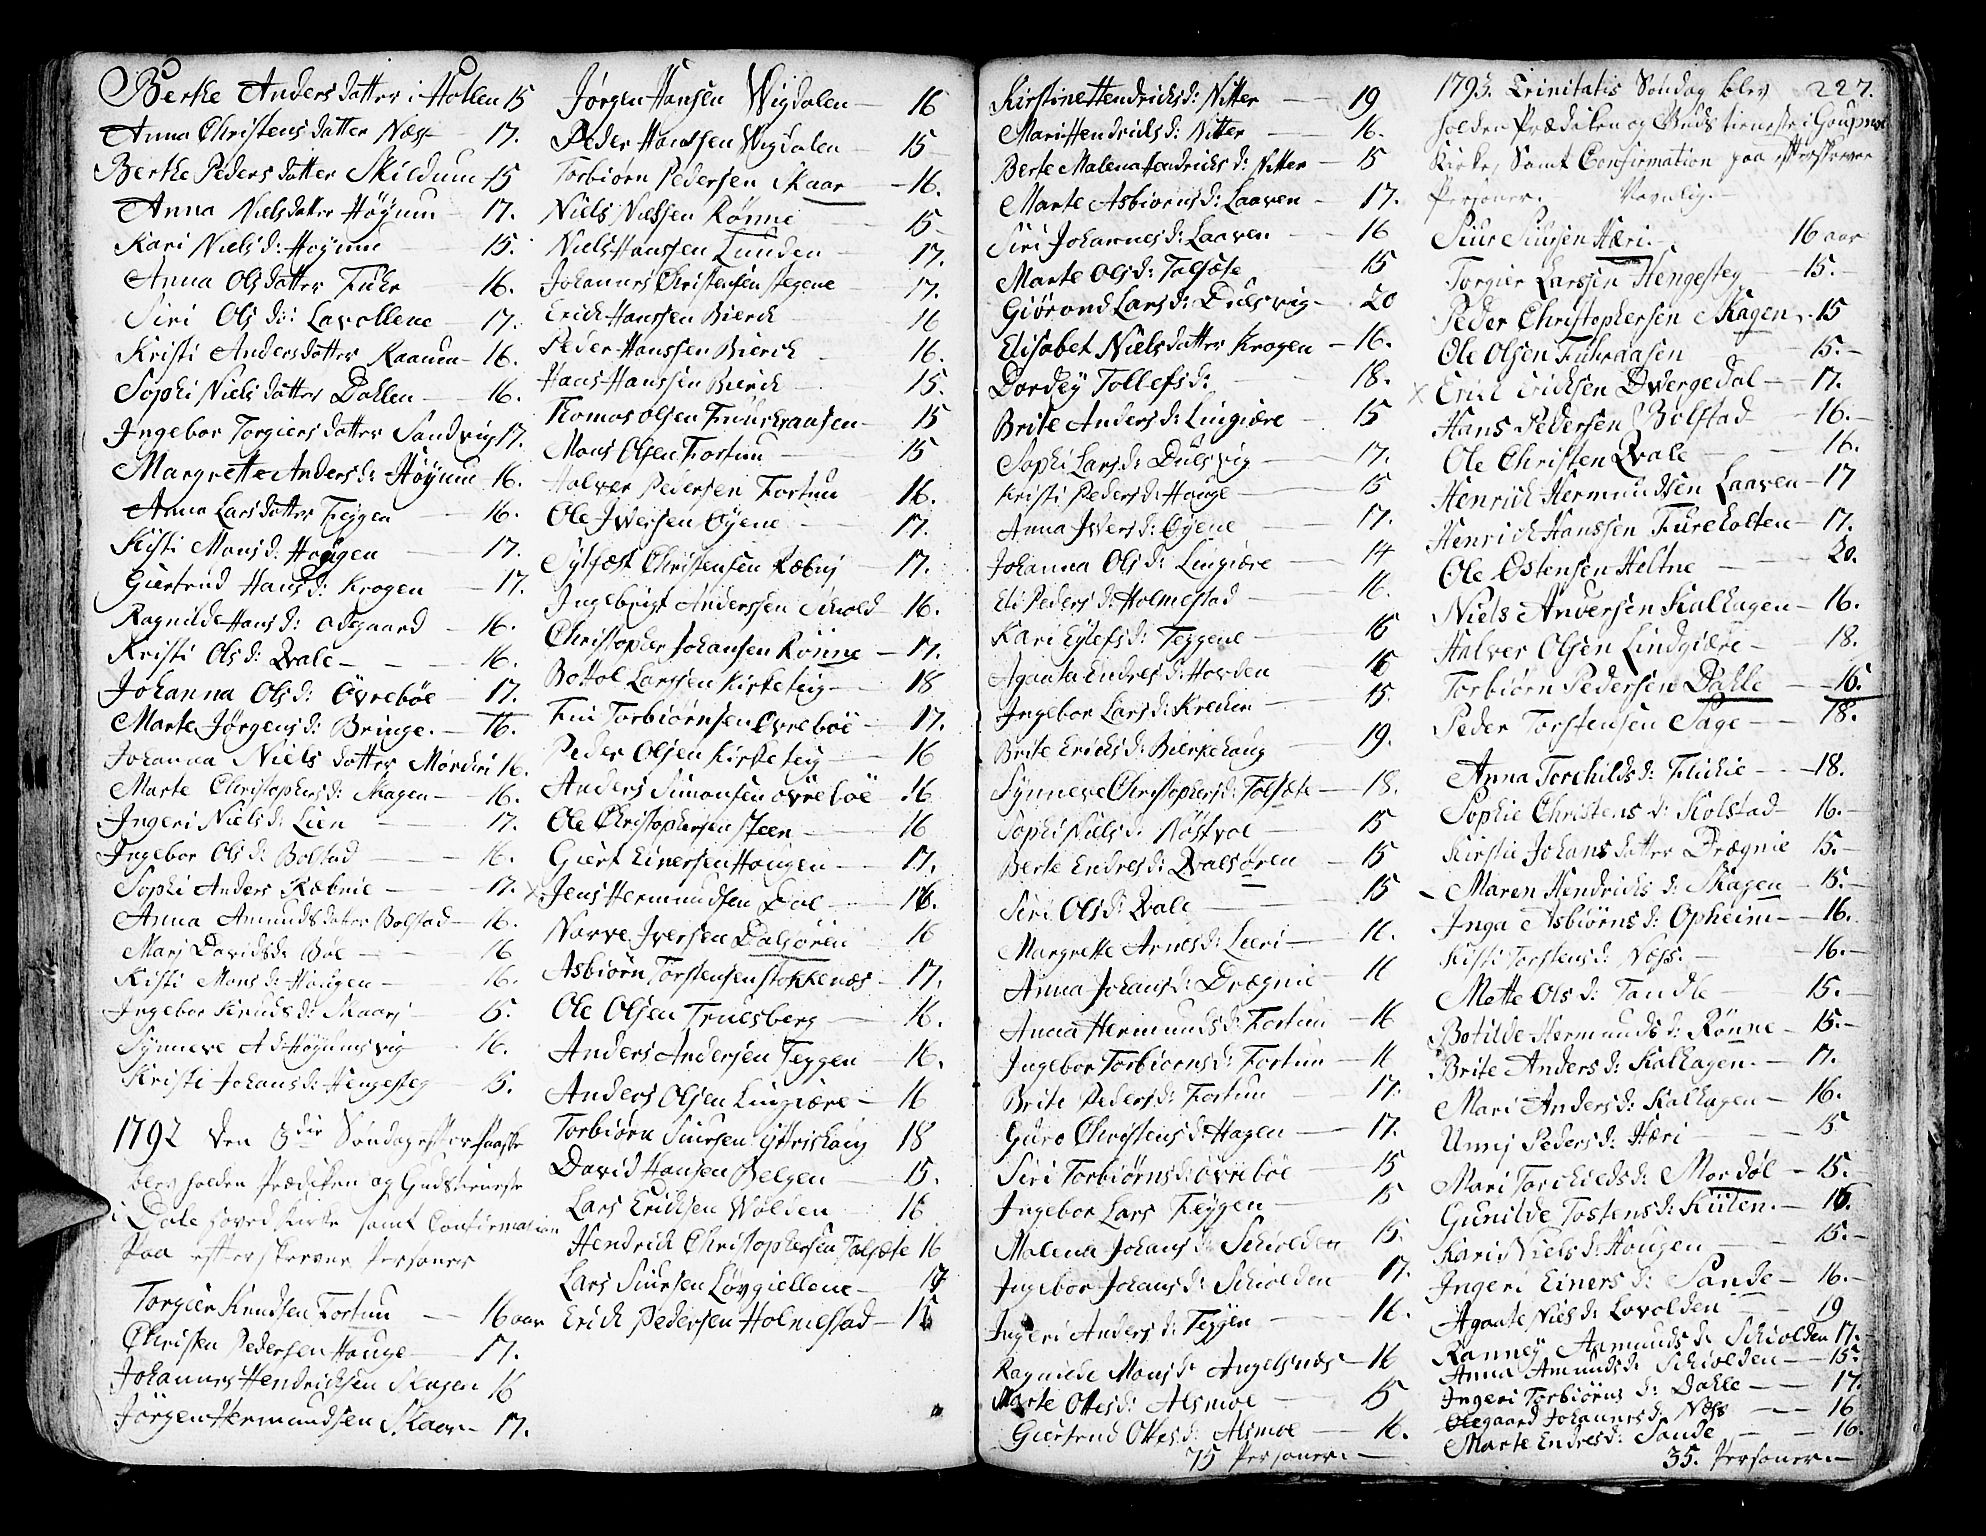 Berthe Andersdatter i Hollen 15
Anna Christensdatter Næss 17.
Berthe Pedersdatter Skildum 15
Anna Nielsdatter Høÿum 17.
Kari Nielsd: Høÿum 15.
Anna Olsdatter Fuhr 16.
Siri Olsd: Lavollene 17.
Kristi Andersdatter Kaarum 16.
Sophi Nielsdatter Dahlen 16.
Ingebor Torgiersdatter Sandvig 17.
Margrethe Andersd: Høÿum 16.
Anna Larsdatter Feÿgen 16.
Kisti Monsd: Hougen 17.
Giertrud Hansd: Krogen 17.
Ragnilde Hansd: Odegaard 16.
Kristi Olsd: Qvale 16.
Johanna Olsd: Øvrebøe 17.
Marte Jørgensd: Bringe 16.
Johanna Nielsdatter Mørckri 16.
Marte Christophersd: Skagen 16.
Ingeri Nielsd: Lien 17.
Ingebor Olsd: Bolstad 16.
Sophi Anders Ræbnie 17.
Anna Amundsdatter Bolstad 16.
Mari Davidsd: Bøe 16
Kisti Monsd: Hougen 16.
Ingebor Knudsd: Skaari 15.
Sÿnneve A d: Høÿumsvig 16.
Kristi Johansd: Hengesteg 15.
1792 den 3die Søndag efter Paaske
blev holden Prædiken og Gudstieneste
i Dale hoved Kirke samt Confirmation
paa efterskrevne Personer
Torgier Knudsen Fortun 16 aar
Christen Pedersen Houge 17.
Johannes Hendricksen Skagen 16
Jørgen Hermundsen Skaar 17.
Jørgen Hansen Wigdalen 16
Peder Hanssen Wigdalen 15
Torbiørn Pedersen Skaar 16.
Niels Nielssen Rønne 15
Niels Hanssen Lunden 17.
Johannes Christensen Stegene 17.
Erich Hanssen Bierck 16
Peder Hanssen Bierck 16.
Hans Hanssen Bierck 15.
Thomas Olsen 15
Mons Olsen Fortun 15
Halver Pedersen Fortun 16.
Ole Iversen Øÿene 17.
Sÿlfest Christensen Ræbnj 17.
Ingebrigt Anderssen Schiold 16.
Christopher Johansen Rønne 17.
Bottol Larssen Kirketeig 18
Torbiørnsen Øvrebøe 17.
Peder Olsen Kirketeig 16
Anders Simonsen Øvrebøe 16
Ole Christophersen Steen 16
Giert Einersen Hougen 17.
Jens Hermundsen Døl 16.
Narve Iversen Dalsøren 16
Asbiørn Torstensen Stokkenæs 17.
Ole Olsen Truesberg 16.
Anders Andersen Feggen 16.
Anders Olsen Lingiære 16
Torbiørn Siursen 18
David Hansen Bergen 15.
Lars Ericksen Wolden 16
Hendrick Christophersen Talsæte 16
Lars Siursen Løvgiellene 17
Erick Pedersen Holmestad 15
Kirstine Hendricksd: Nitter 19
Mari Hendricksd: Nitter 16.
Berte Malena Hendricksd: Nitter 15
Marte Asbiørnsd: Laaven 17.
Siri Johannesd: Laaven 16
Marte Olsd: Talsæte 15
Giørond Larsd: Dulsvig 20
Elisabet Nielsdatter Krogen 16.
Dordeÿ Tollefsd: 18.
Brite Andersd: Lingiære 15
Sophi Larsd: Dulsvig 17.
Kristi Pedersd: Houge 15
Anna Iversd: Øÿene 17.
Johanna Olsd: Lingiære 14
Eli Pedersd: Holmestad 16.
Kari Eÿlefsd: Feggene 16
Agaata Endresd: Horden 16
Ingebor Larsd: Krecken 15.
Brite Ericksd: Bierkehaug 19.
Sÿnneve Christophersd: Talsæte 18.
Sophi Nielsd: Nøstvol 15
Berte Endresd: Qvalsøren 15
Siri Olsd: Qvale 15
Margrette Arnesd: Lieri 16.
Anna Johansd: Drægnie 16
Anna Hermundsd: Fortun 16
Ingebor Torbiørnsd: Fortun 16
Brite Pedersd: Fortun 17.
Guro Christensd: Hagen 17.
Siri Torbiørnsd: Øvrebøe 15
Ingebor Lars Feÿgen 15
Malena Johansd: Schiolden 15.
Ingebor Johansd: Schiolden 17.
Ingeri Andersd: Feggen 16.
Ragnilde Monsd: Angelsnæs 16
Marte Ottesd: Alsmoe 15
Giertrud Ottesd: Alsmoe 16.
75 Personer.
1793. Trinitatis Søndag blev 227.
holden Prædiken og Gudstieneste i Goupne
Kirke, samt Confirmation paa efterskrevne
Personer. Navnlig.
Siur Siursen Hæri 16 aar
Torgier Larssen Hengesteg 15.
Peder Christophersen Skagen 15
Ole Olsen Fuhraasen 15.
× Erick Ericksen Dvergedal 17.
Hans Pedersen Bolstad 16.
Ole Christen Qvale 16.
Henrick Hermundsen Laaven 17
Henrick Hanssen Fureholten 17.
Ole Østensen Heltne 20.
Niels Andersen Kalhagen 16.
Halver Olsen Lindgiære 18.
Torbiørn Pedersen Dahle 16.
Peder Torstensen Sage 18.
Anna Torchildsd: Flickie 18.
Sophie Christensd: Kolstad 16.
Kirstie Johansdatter Drægnie 15.
Maren Hendricksd: Skagen 15.
Inga Asbiørnsd: Opheim 16.
Kisti Torstensd: Næss. 16.
Mette Olsd: Tandle 15.
Botilde Hermundsd: Rønne 15.
Brite Andersd: Kalhagen 17.
Mari Andersd: Kalhagen 16.
Unnj Pedersd: Hæri 15
Mari Torchieldsd: Mordøl 15.
Gunilde Tostensd: Kiilen. 16.
Kari Nielsd: Hougen 15.
Ingeri Einersd: Sande 16.
Agaate Nielsd: Lovolden 19
Ranneÿ Aamundsd: Schiolden 17.
Anna Amundsd: Schiolden 15.
Ingeri Torbiørnsd: Dahle 17.
Olegaard Johannesd: Næss 16
Marte Endresd: Sande 16.
35. Personer.